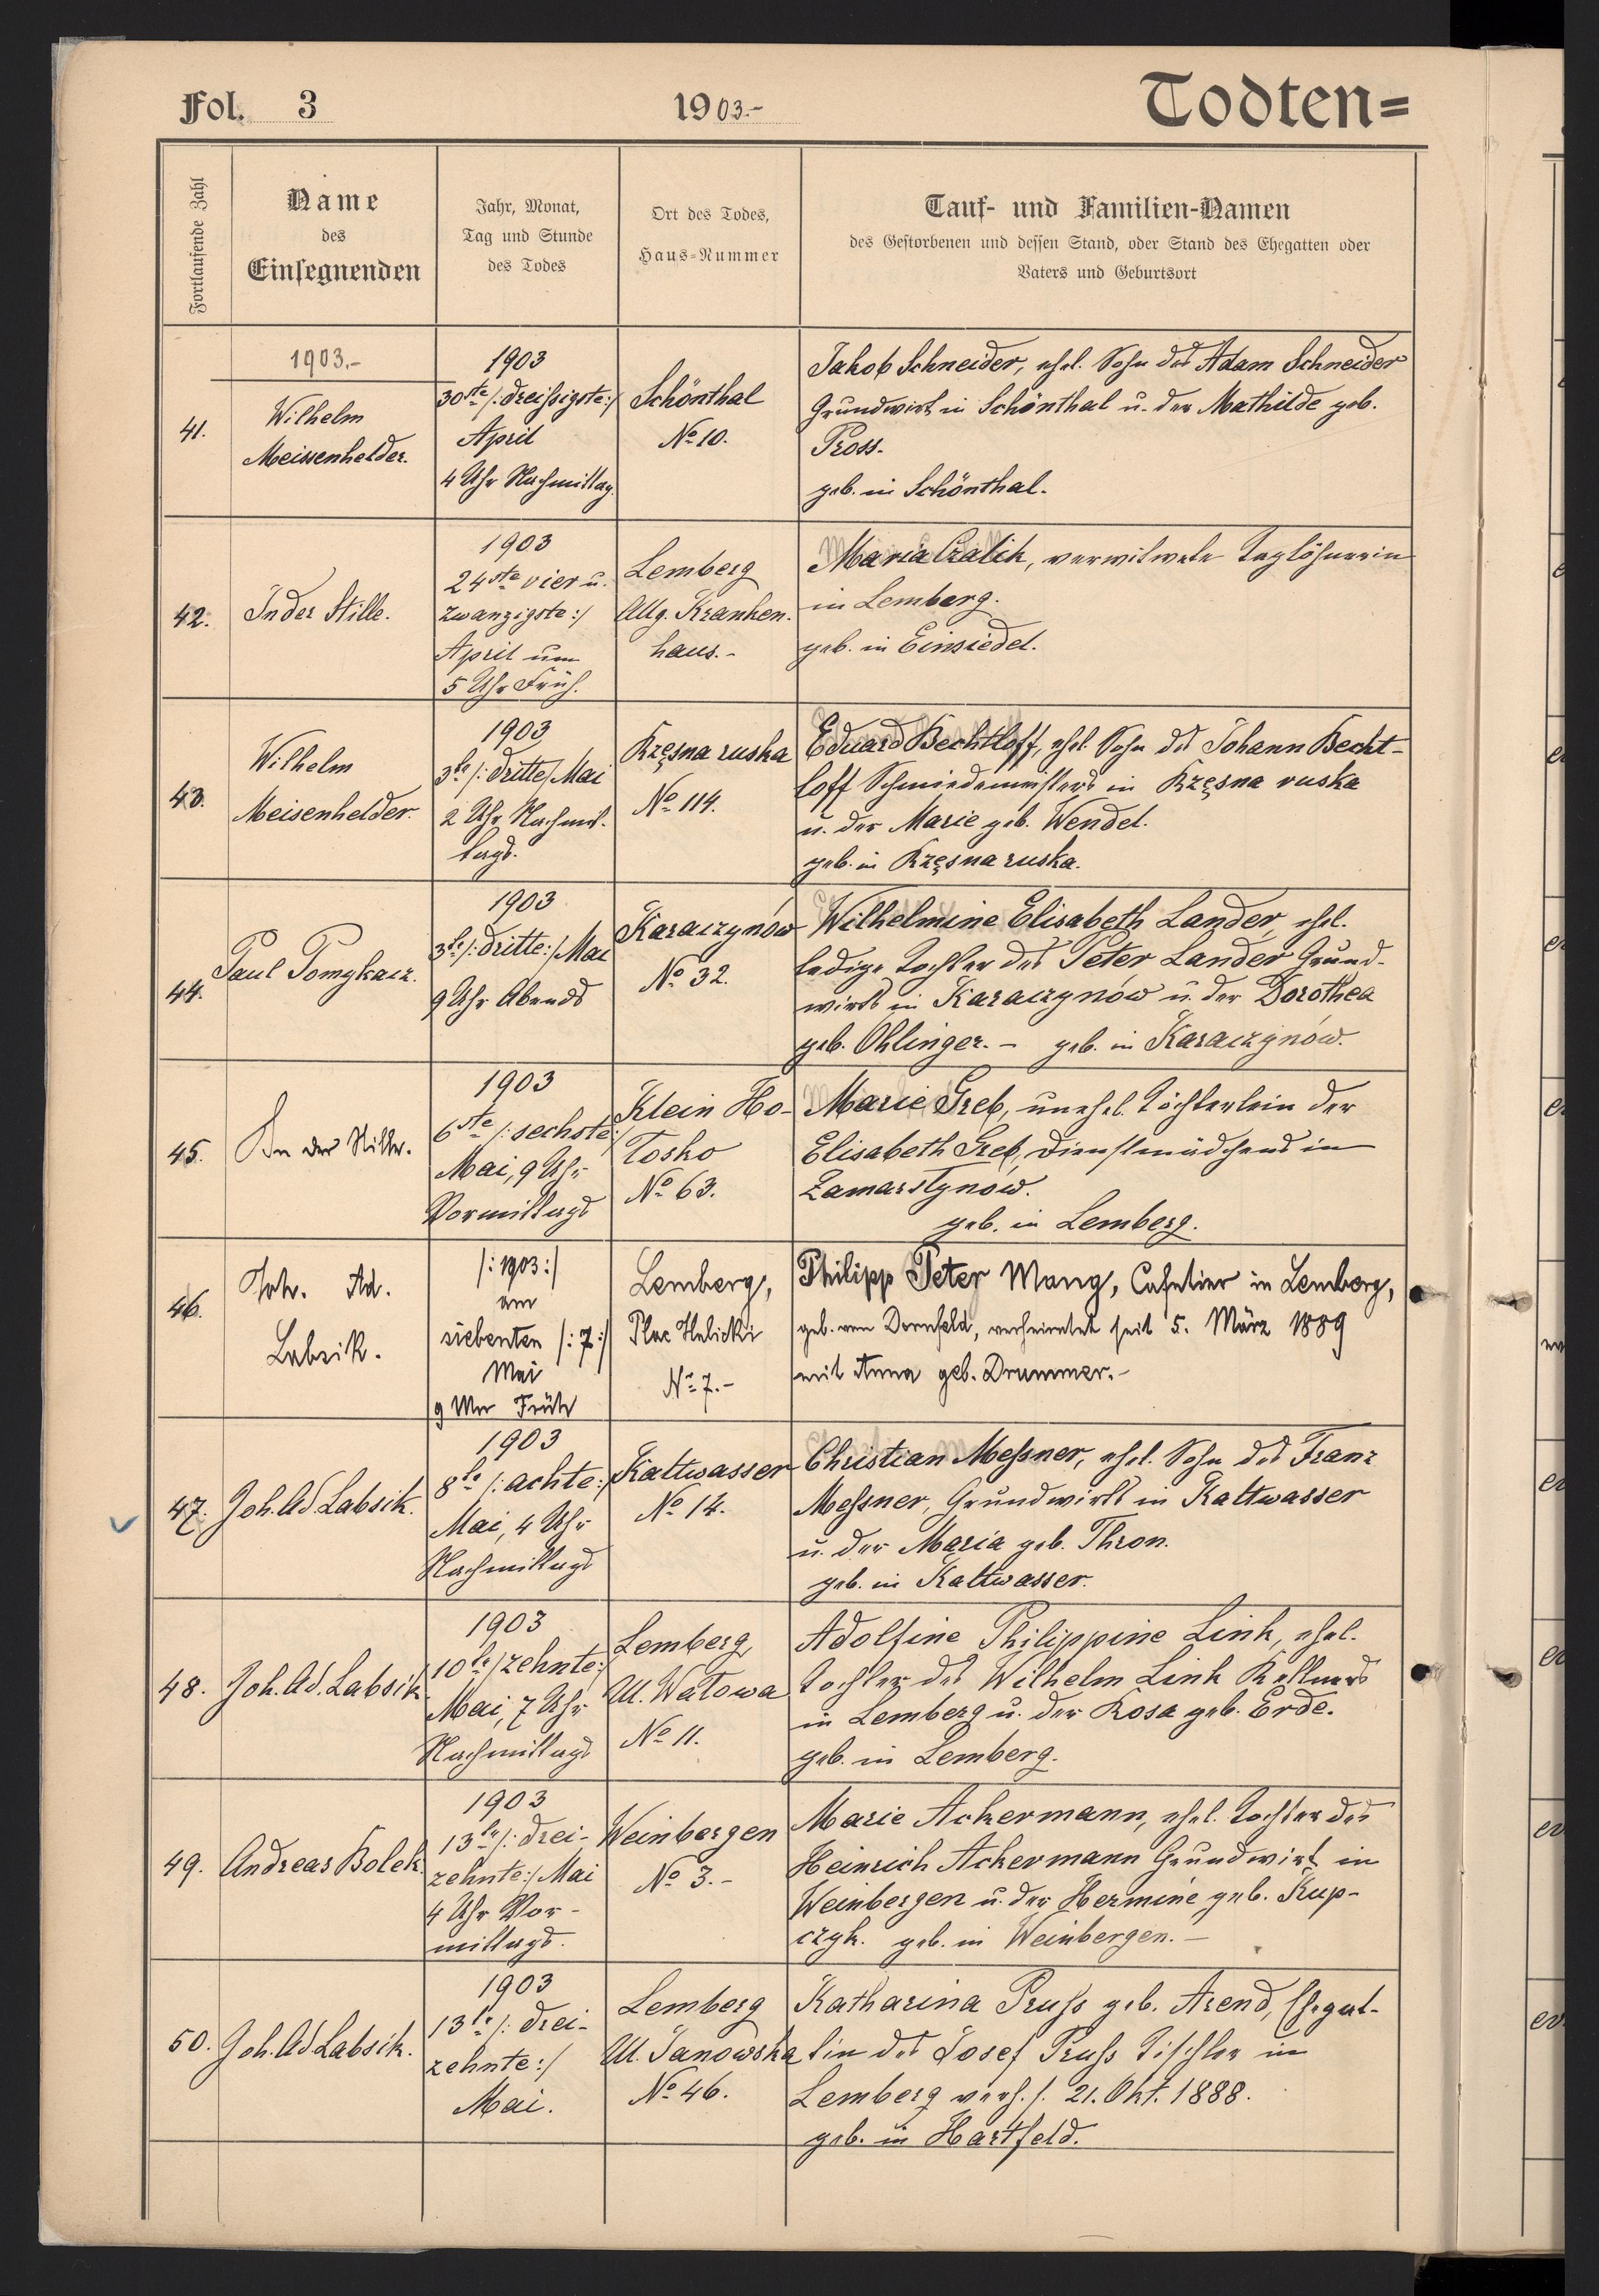 Fol. 3
1903.-
Todten=
Fortlaufende Zahl
Name
des
Einsegnenden
Jahr, Monat,
Tag und Stunde
des Todes
Ort des Todes,
Haus-Nummer
Tauf- und Familien-Namen
des Gestorbenen und dessen Stand, oder Stand des Ehegatten oder
Vaters und Geburtsort
1903.-
41.
Wilhelm
Meissenhelder.
1903
30te /: dreißigste :/
April
4 Uhr Nachmittag.
Schönthal
No 10.
Jakob Schneider, ehel. Sohn des Adam Schneider
Grundwirt in Schönthal u. der Mathilde geb.
Pross.
geb. in Schönthal.
42.
In der Stille.
1903
24ste vier u.
zwanzigste :/
April um
5 Uhr Früh.
Lemberg
Allg. Kranken.
haus.-
Maria Cralik, verwitwete Taglöhnerin
in Lemberg.
geb. in Einsiedel.
43.
Wilhelm
Meisenhelder.
1903
3te /: dritte/ Mai
2 Uhr Nachmit-
tags.
Rzęsna ruska
No 114.
Eduard Bechtloff, ehel. Sohn des Johann Becht-
loff Schmiedemeisters in Rzęsna ruska
u. der Marie geb. Wendel.
geb. in Rzęsna ruska.
44.
Paul Pomykacz.
1903
3te /: dritte :/ Mai
9 Uhr Abends
Karaczynów
No 32.
Wilhelmine Elisabeth Lander, ehel.
ledige Tochter des Peter Lander Grund-
wirts in Karaczynów u. der Dorothea
geb. Ohlinger. - geb. in Karaczynów.
45.
In der Stille.
1903
6te /: sechste :/
Mai, 9 Uhr
Vormittags
Klein Ho-
łosko
No 63.
Marie Greb, unehel. Töchterlein der
Elisabeth Greb, Dienstmädchens in
Zamarstynów.
geb. in Lemberg.
46.
Joh. Ad.
Labsik.
/: 1903 :/
am
siebenten /: 7 :/
Mai
9 Uhr Früh
Lemberg,
Plac Halicki
No 7.-
Philipp Peter Mang, Cafetier in Lemberg,
geb. von Dornfeld, verheiratet seit 5. März 1889
mit Anna geb. Drummer.-
47.
Joh. Ad. Labsik.
1903
8te /: achte :/
Mai, 4 Uhr
Nachmittags
Kaltwasser
No 14.
Christian Meßner, ehel. Sohn des Franz
Meßner, Grundwirts in Kaltwasser
u. der Maria geb. Thron.
geb. in Kaltwasser.
48.
Joh. Ad. Labsik.
1903
10te /zehnte :/
Mai, 7 Uhr
Nachmittags
Lemberg,
Ul. Wałowa
No 11.
Adolfine Philippine Link, ehel.
Tochter des Wilhelm Link Kellners
in Lemberg u. der Rosa geb. Erde.
geb. in Lemberg.
49.
Andreas Bolek.
1903
13te /: drei-
zehnte :/ Mai
4 Uhr Vor-
mittags.
Weinbergen
No 3.-
Marie Ackermann, ehel. Tochter des
Heinrich Ackermann Grundwirt in
Weinbergen u. der Hermine geb. Kup-
czyk. geb. in Weinbergen.-
50.
Joh. Ad Labsik.
1903
13te /: drei-
zehnte :/
Mai.
Lemberg
Ul. Janowska
No 46.
Katharina Pruß geb. Arend, Ehegat-
tin des Josef Pruß Tischler in
Lemberg verh. s. 21. Okt. 1888.
geb. in Hartfeld.